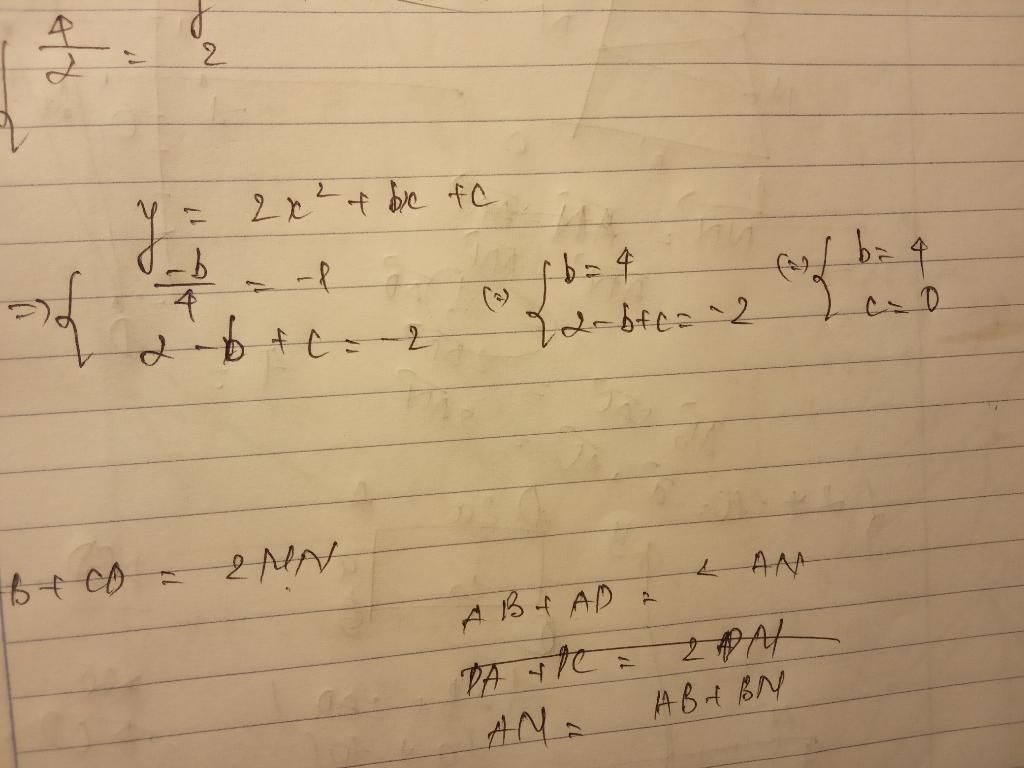 4/2 = y/2
y = 2x² + bx + c
=> { -b/4 = -1 (=) { b = 4 (=) { b = 4
2 - b + c = -2 2 - b + c = -2 c = 0
B + CD = 2MN
AB + AD =
DA + DC = 2DN
AM = AB + BM